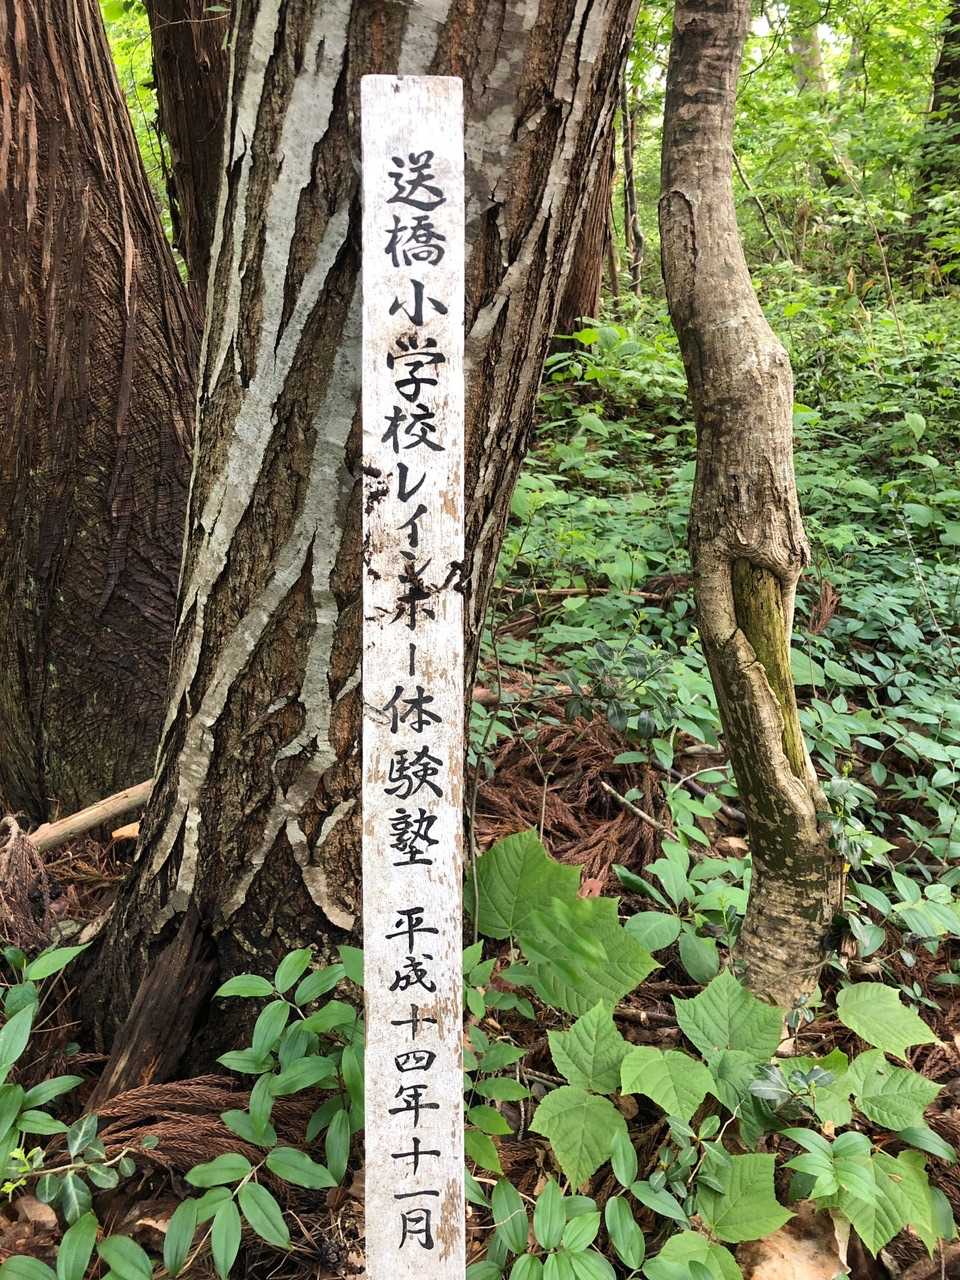 送橋小学校レインボー体験塾 平成十四年十一月